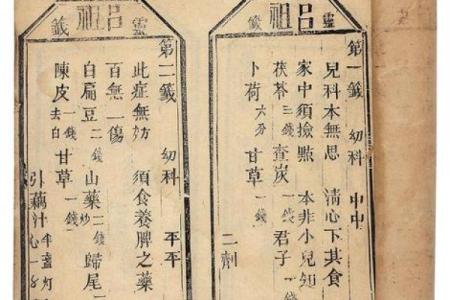 呂祖靈籤
第一籤 幼科 中中
兒科本無思 清心下其食
家中須撿點 本非小兒知
茯苓三錢 查炭一錢 君子一錢
卜荷六分 甘草一錢
二劑
呂祖靈籤
第二籤 幼科 平平
此症無妨 須食養脾之藥
百無一傷
白扁豆二錢 山藥炒二錢 歸尾一錢
陳皮去白一錢 甘草一錢
引藕汁半盞灯心一